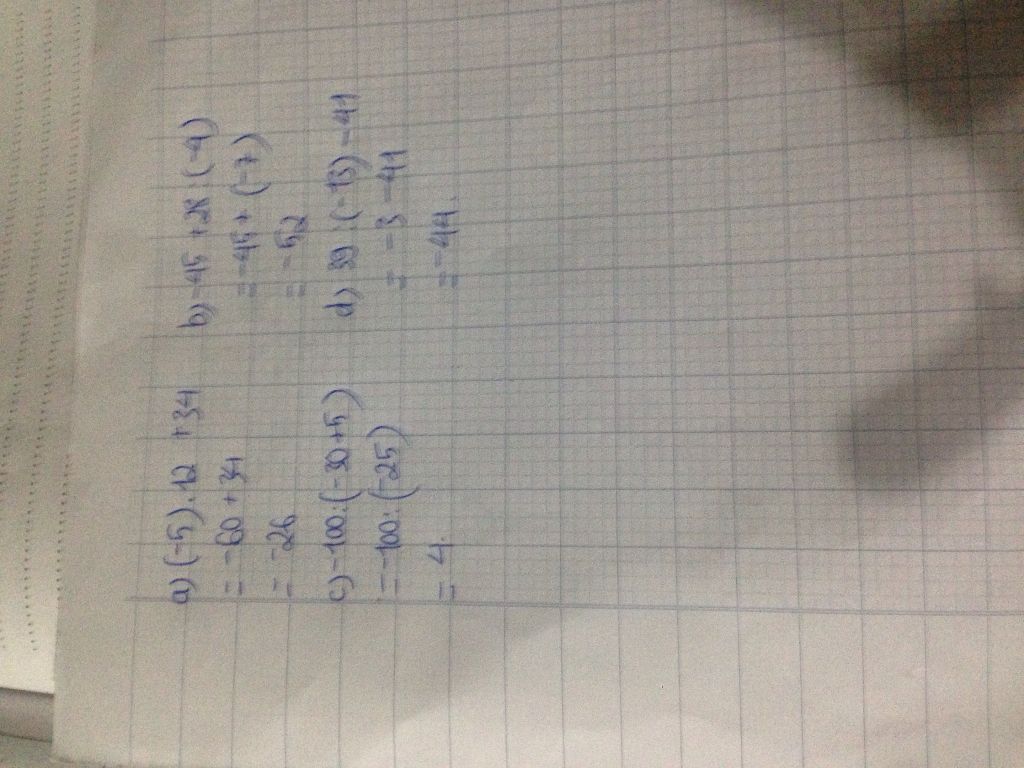 a) (-5).12 +34
= -60 +34
= -26
b) -45 +28:(-4)
= -45+ (-7)
= -52
c) -100:(-30+5)
= -100:(-25)
= 4.
d) 39:(-13) -41
= -3 -41
= -44.